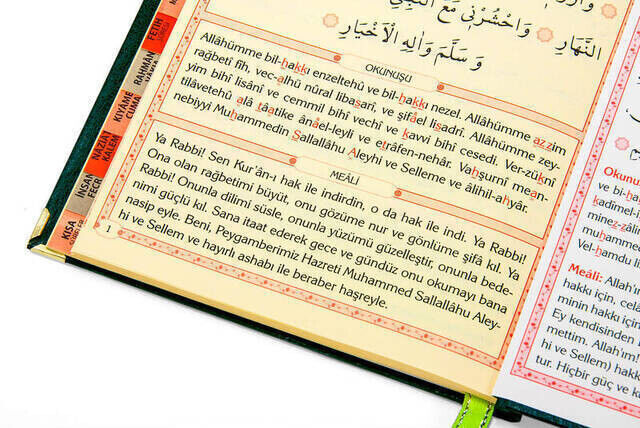 النَّهَارِ وَاحْشُرْنِي مَعَ النَّبِيِّ
وَسَلَّمَ وَاٰلِهِ الْاَخْيَارِ
OKUNUŞU
Allâhümme bil-hakkı enzeltehû ve bil-hakkı nezel. Allâhümme azzim
rağbetî fîh, vec-alhü nûral libasarî, ve şifâel lisadrî. Allâhümme zey-
yim bihî lisânî ve cemmil bihî vechî ve kavvi bihî cesedî. Ver-züknî
tilâvetehû alâ tâatike ânâel-leyli ve etrâfen-nehâr. Vahşurnî mean-
nebiyyi Muhammedin Sallallâhu Aleyhi ve Selleme ve âlihil-ahyâr.
MEÂLİ
Ya Rabbi! Sen Kur'ân-ı hak ile indirdin, o da hak ile indi. Ya Rabbi!
Ona olan rağbetimi büyüt, onu gözüme nur ve gönlüme şifâ kıl. Ya
Rabbi! Onunla dilimi süsle, onunla yüzümü güzelleştir, onunla bede-
nimi güçlü kıl. Sana itaat ederek gece ve gündüz onu okumayı bana
nasip eyle. Beni, Peygamberimiz Hazreti Muhammed Sallallâhu Aley-
hi ve Sellem ve hayırlı ashabı ile beraber haşreyle.
1
FETİH
SURESİ
RAHMÂN
VÂKIA
KIYÂME
CUMA
NÂZİAT
KALEM
İNSAN
FECR
KISA
Okunu
ve bi-h
kadîmel
minez-z
muham
Vel-hamdu l
Meâli: Allah'ı
hakkı için. cel
minin hakkı iç
Ey kendisinden
mettim. Allah'ım!
hi ve Sellem) hakk
tur. Hiçbir güç ve k